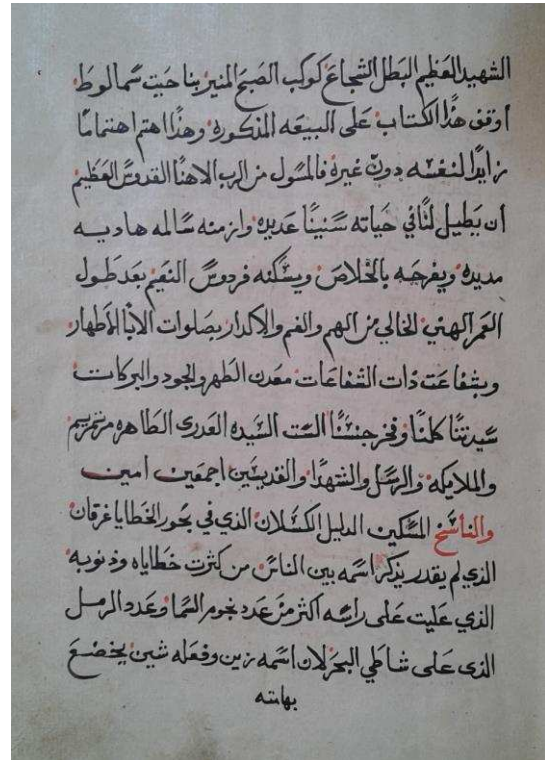 الشهيد العظيم البطل الشجاع كوكب الصبح المنير بناحيت سمالوط
أوقف هذا الكتاب على البيعه المذكوره وهذا اهتم اهتمامًا
زايدًا لنفسه دون غيرة فالمسول من الرب الاهنا القدوس العظيم
أن يطيل لنا في حياته سنينًا عديده وازمنه سالمه هاديه
مديده ويفرجه بالخلاص ويسكنه فردوس النعيم بعد طول
العمر الهني الخالي من الهم والغم والاكدار بصلوات الابا الأطهار
وبشفاعت ذات الشفاعات معدن الطهر والجود والبركات
سيدتنا كلنا وفخر جنسنا الست السيده العدرى الطاهره مرتمريم
والملايكه والرسل والشهدا والقديسين اجمعين امين
والناسخ المسكين الدليل الكسلان الذي في بحور الخطايا غرقان
الذي لم يقدر يذكر اسمه بين الناس من كثرت خطاياه وذنوبه
الذي عليت على راسه اكثر من عدد نجوم السما وعدد الرمل
الذى على شاطي البحر لان اسمه زين وفعله شين يخضع
بهامته